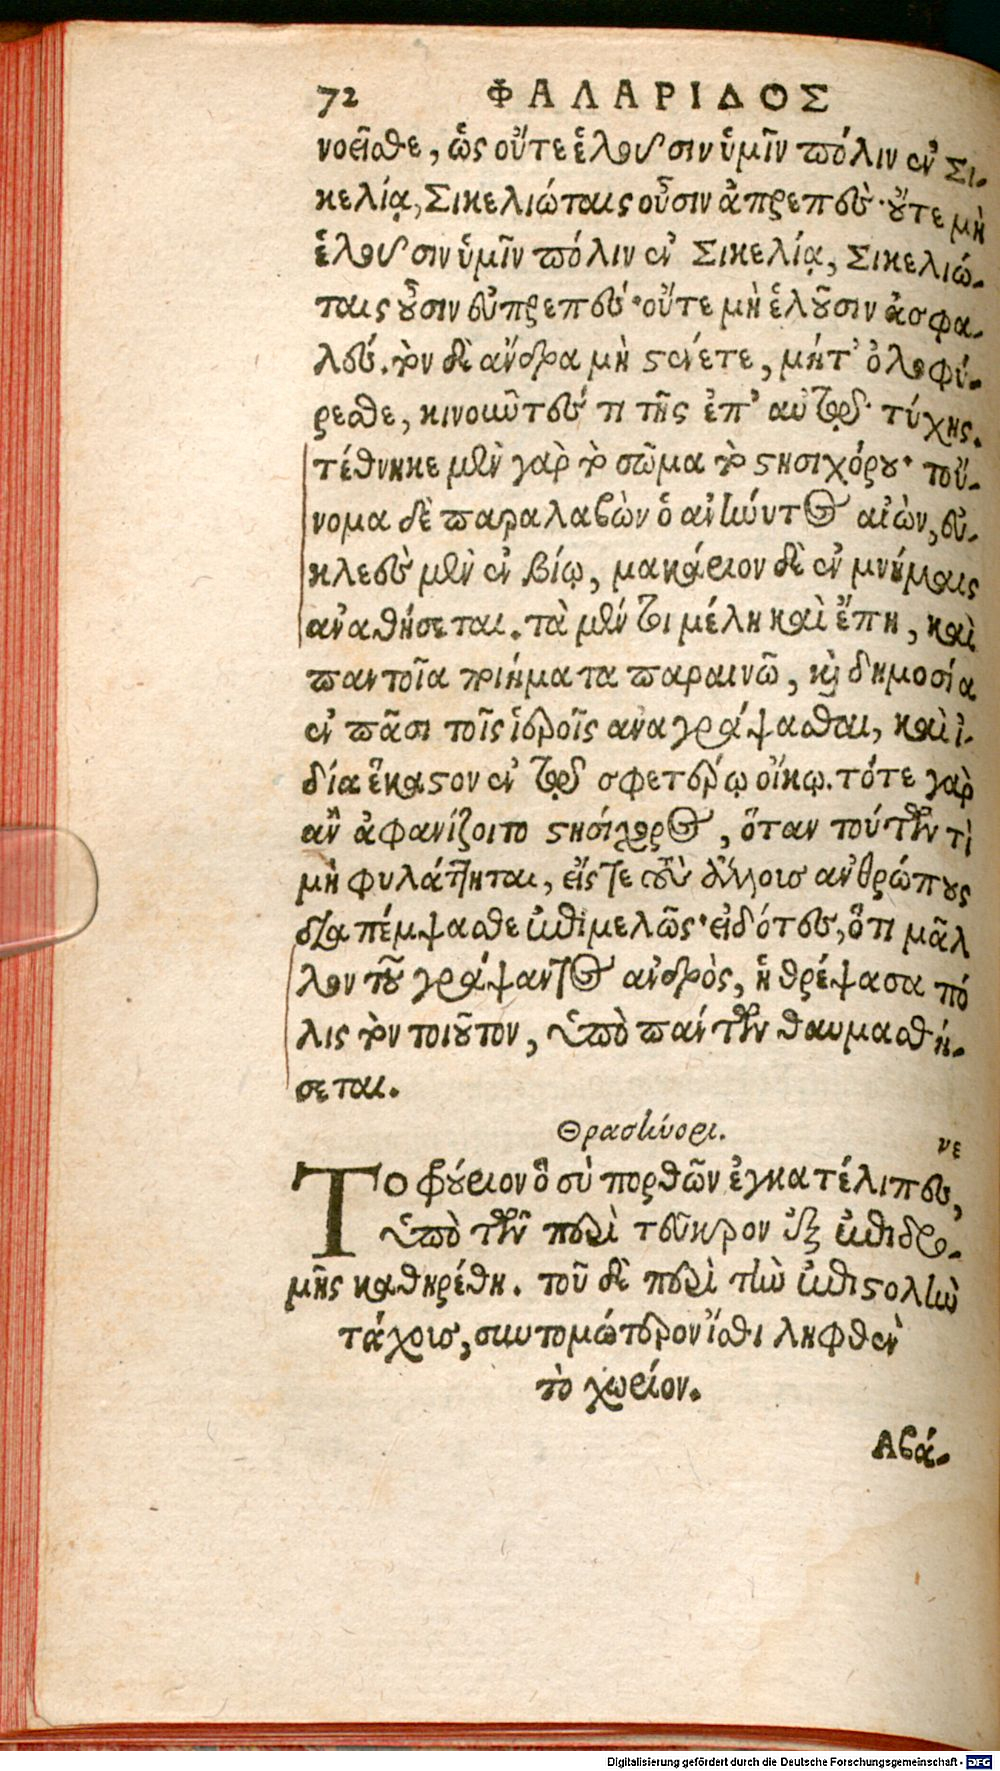 72 ΦΑΛΑΡΙΔΟΣ
νοεῖσθε, ὡς οὔτε ἑλοῦσιν ὑμῖν πόλιν ἐν Σι-
κελίᾳ, Σικελιώταις οὖσιν ἀπρεπές· οὔτε μὴ
ἑλοῦσιν ὑμῖν πόλιν ἐν Σικελίᾳ, Σικελιώ-
ταις οὖσιν εὐπρεπές· οὔτε μὴ ἑλοῦσιν ἀσφα-
λές. τὸν δὲ ἄνδρα μὴ στένετε, μήτ' ὀλοφύ-
ρεσθε, κινοῦντές τι τῆς ἐπ' αὐτῷ τύχης.
τέθνηκε μὲν γὰρ τὸ σῶμα τὸ στησιχόρου· τοὔ-
νομα δὲ παραλαβὼν ὁ ἀνήνυτος αἰὼν, εὐ-
κλεὲς μὲν ἐν βίῳ, μακάριον δὲ ἐν μνήμαις
ἀναθήσεται. τὰ μέν τοι μέλη καὶ ἔπη, καὶ
παντοῖα ποιήματα παραινῶ, καὶ δημοσίᾳ
ἐν πᾶσι τοῖς ἱεροῖς ἀναγράψασθαι, καὶ ἰ-
δίᾳ ἕκαστον ἐν τῷ σφετέρῳ οἴκῳ. τότε γὰρ
ἂν ἀφανίζοιτο στησίχορος, ὅταν τούτων τὶ
μὴ φυλάττηται, εἴς τε τοὺς ἄλλους ἀνθρώπους
διαπέμψασθε ἐπιμελῶς· εἰδότες, ὅτι μᾶλ
λον τοῦ γράψαντος ἀνδρὸς, ἡ θρέψασα πό
λις τὸν τοιοῦτον, ὑπὸ πάντων θαυμασθή-
σεται.
Θρασύνορι.
νε
ΤΟ φρούριον ὃ σὺ πορθῶν ἐγκατέλιπες,
ὑπὸ τῶν περὶ τεῦκρον ἐξ ἐπιδρο-
μῆς καθηρέθη. τοῦ δὲ περὶ τὴν ἐπιστολὴν
τάχους, συντομώτερον ἴσθι ληφθὲν
τὸ χωρίον.
Αβά-
Digitalisierung gefördert durch die Deutsche Forschungsgemeinschaft - DFG